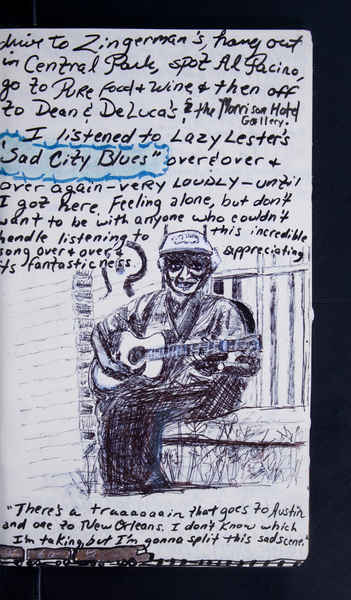 drive to Zingerman's, hang out
in Central Park, spot Al Pacino,
go to Pure Food & Wine & then off
to Dean & DeLuca's & the Morrison Hotel
Gallery.
I listened to Lazy Lester's
"Sad City Blues" over & over &
over again - very LOUDLY - until
I got here. Feeling alone, but don't
want to be with anyone who couldn't
handle listening to this incredible
song over & over & appreciating
its fantasticness.
"There's a traaaaaain that goes to Austin
and one to New Orleans. I don't know which
I'm taking, but I'm gonna split this sad scene."